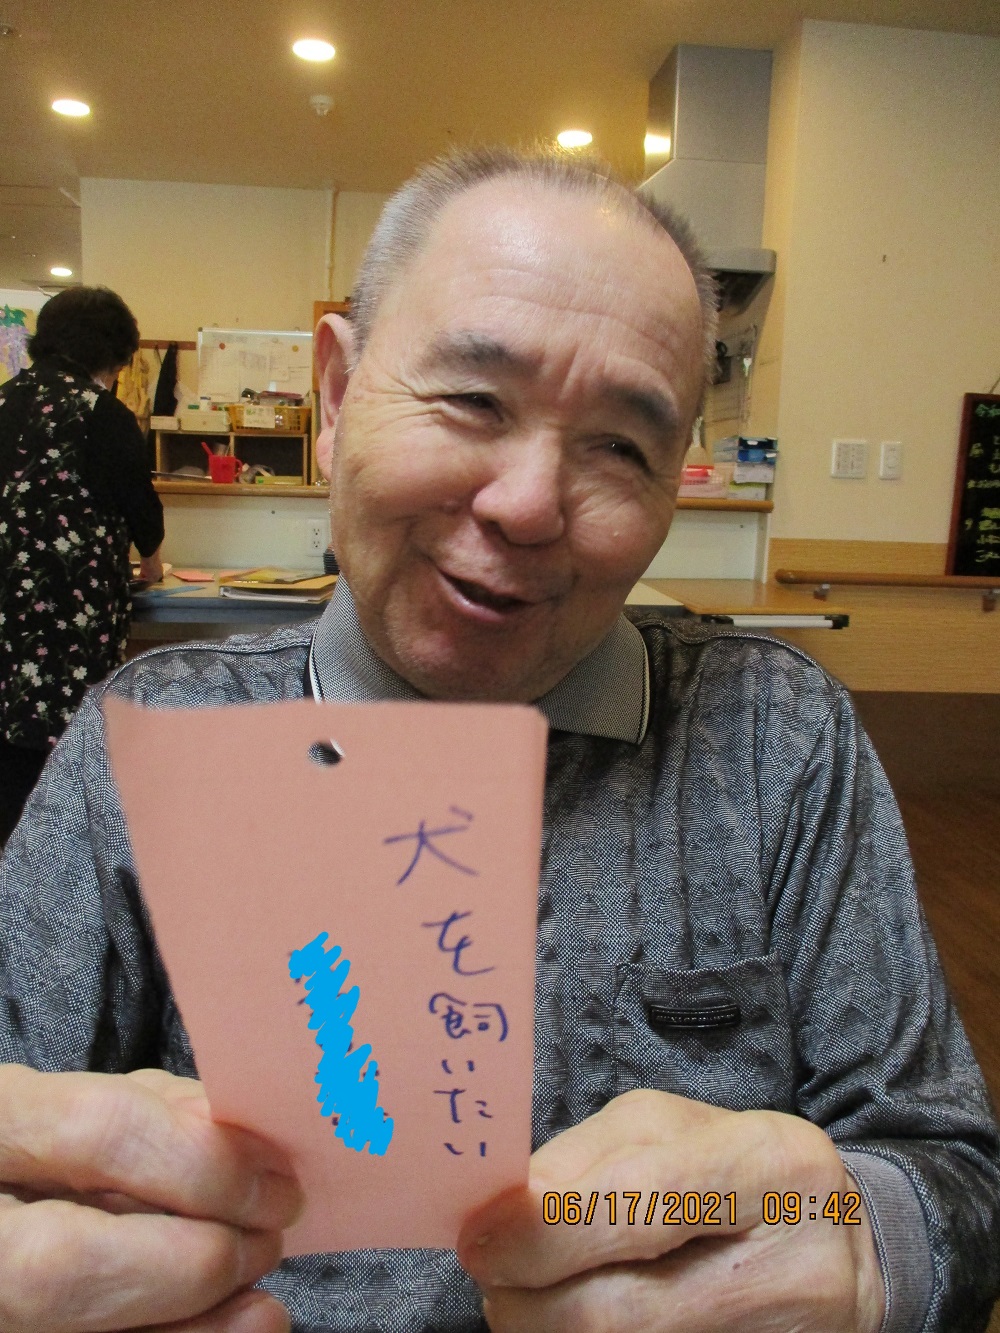 犬を飼いたい
06/17/2021 09:42